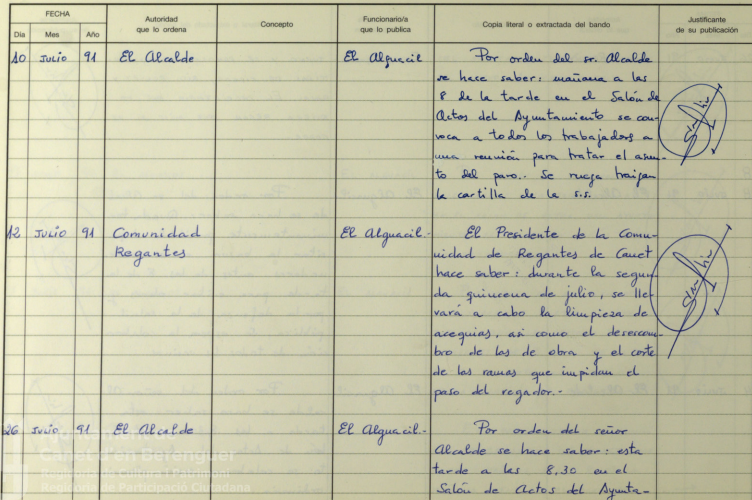 FECHA
Día Mes Año
Autoridad
que lo ordena
Concepto
Funcionario/a
que lo publica
Copia literal o extractada del bando
Justificante
de su publicación
10 JULIO 91 El Alcalde El Alguacil Por orden del sr. Alcalde
se hace saber: mañana a las
8 de la tarde en el Salón de
Actos del Ayuntamiento se con-
voca a todos los trabajadores a
una reunión para tratar el asun-
to del paro.. Se ruega traigan
la cartilla de la s.s.
12 JULIO 91 Comunidad El Alguacil.- El Presidente de la Comu-
Regantes nidad de Regantes de Canet
hace saber: durante la segun-
da quincena de julio, se lle-
vará a cabo la limpieza de
acequias, asi como el desescom-
bro de las de obra y el corte
de las ramas que impidan el
paso del regador.-
26 JULIO 91 El Alcalde El Alguacil.- Por orden del señor
Alcalde se hace saber: esta
tarde a las 8,30 en el
Salón de Actos del Ayunta-
Ajuntament de
Canet d'en Berenguer
Regidoria de Cultura i Patrimoni
Regidoria de Participació Ciutadana